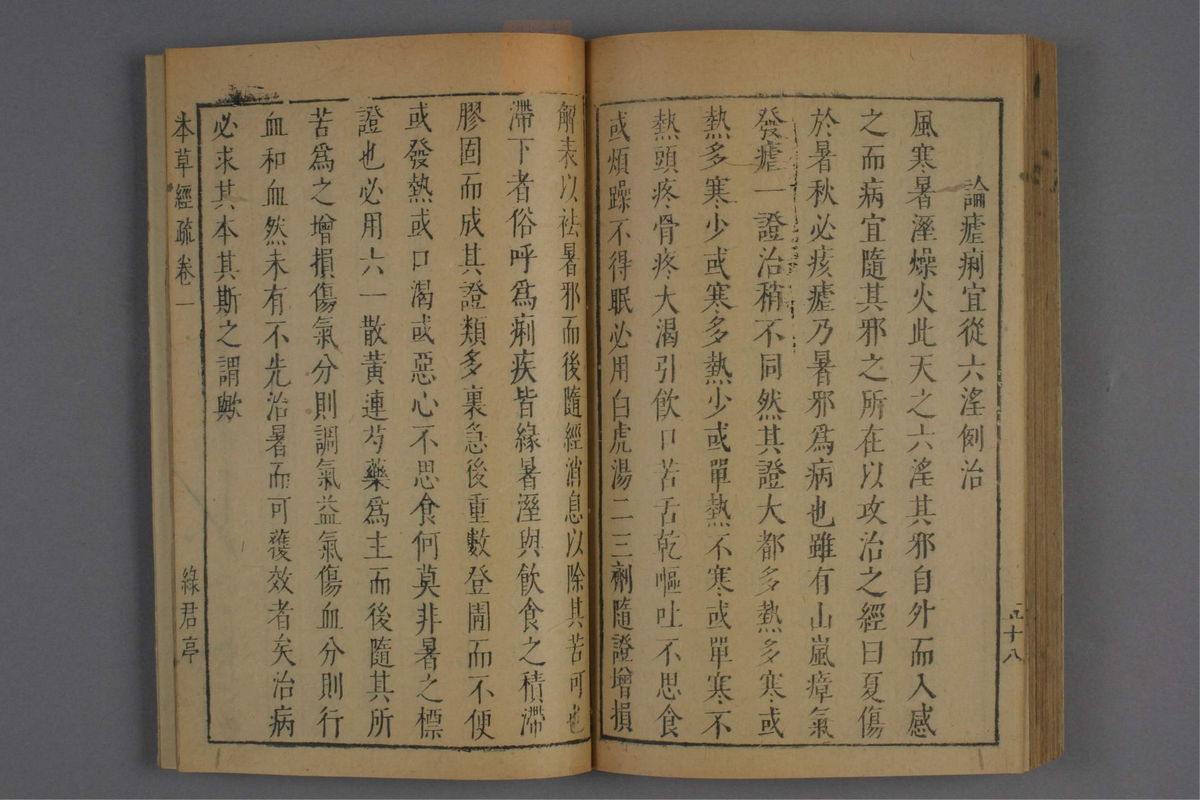 論瘧痢宜從六淫例治
風寒暑溼燥火此天之六淫其邪自外而入感
之而病宜隨其邪之所在以攻治之經曰夏傷
於暑秋必痎瘧乃暑邪爲病也雖有山嵐瘴氣
發瘧一證治稍不同然其證大都多熱多寒或
熱多寒少或寒多熱少或單熱不寒或單寒不
熱頭疼骨疼大渴引飲口苦舌乾嘔吐不思食
或煩躁不得眠必用白虎湯二三劑隨證增損
解表以袪暑邪而後隨經消息以除其苦可也
滯下者俗呼爲痢疾皆緣暑溼與飲食之積滯
膠固而成其證類多裏急後重數登圊而不便
或發熱或口渴或惡心不思食何莫非暑之標
證也必用六一散黃連芍藥爲主而後隨其所
苦爲之增損傷氣分則調氣益氣傷血分則行
血和血然未有不先治暑而可獲效者矣治病
必求其本其斯之謂歟
本草經疏卷一
綠君亭